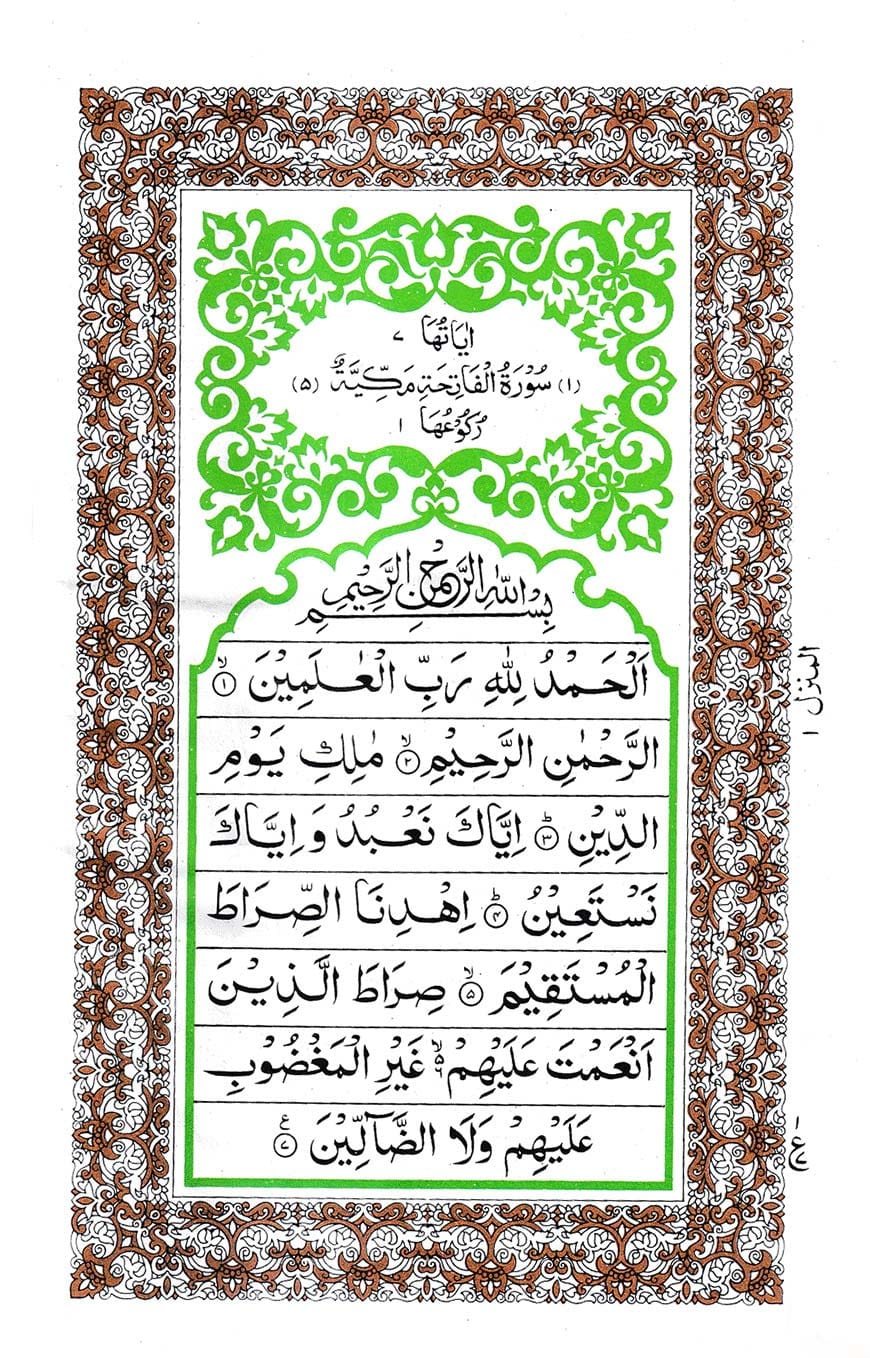 اٰيَاتُهَا ٧
(١) سُوْرَةُ الْفَاتِحَةِ مَكِّيَّةٌ (٥)
رُكُوْعُهَا ١
بِسْمِ اللّٰهِ الرَّحْمٰنِ الرَّحِيْمِ
اَلْحَمْدُ لِلّٰهِ رَبِّ الْعٰلَمِيْنَ ۙ﴿١﴾
الرَّحْمٰنِ الرَّحِيْمِ ۙ﴿٢﴾ مٰلِكِ يَوْمِ
الدِّيْنِ ؕ﴿٣﴾ اِيَّاكَ نَعْبُدُ وَ اِيَّاكَ
نَسْتَعِيْنُ ؕ﴿٤﴾ اِهْدِنَا الصِّرَاطَ
الْمُسْتَقِيْمَ ۙ﴿٥﴾ صِرَاطَ الَّذِيْنَ
اَنْعَمْتَ عَلَيْهِمْ ۙ۬ غَيْرِ الْمَغْضُوْبِ
عَلَيْهِمْ وَلَا الضَّآلِّيْنَ ۧ﴿٧﴾
المنزل ١